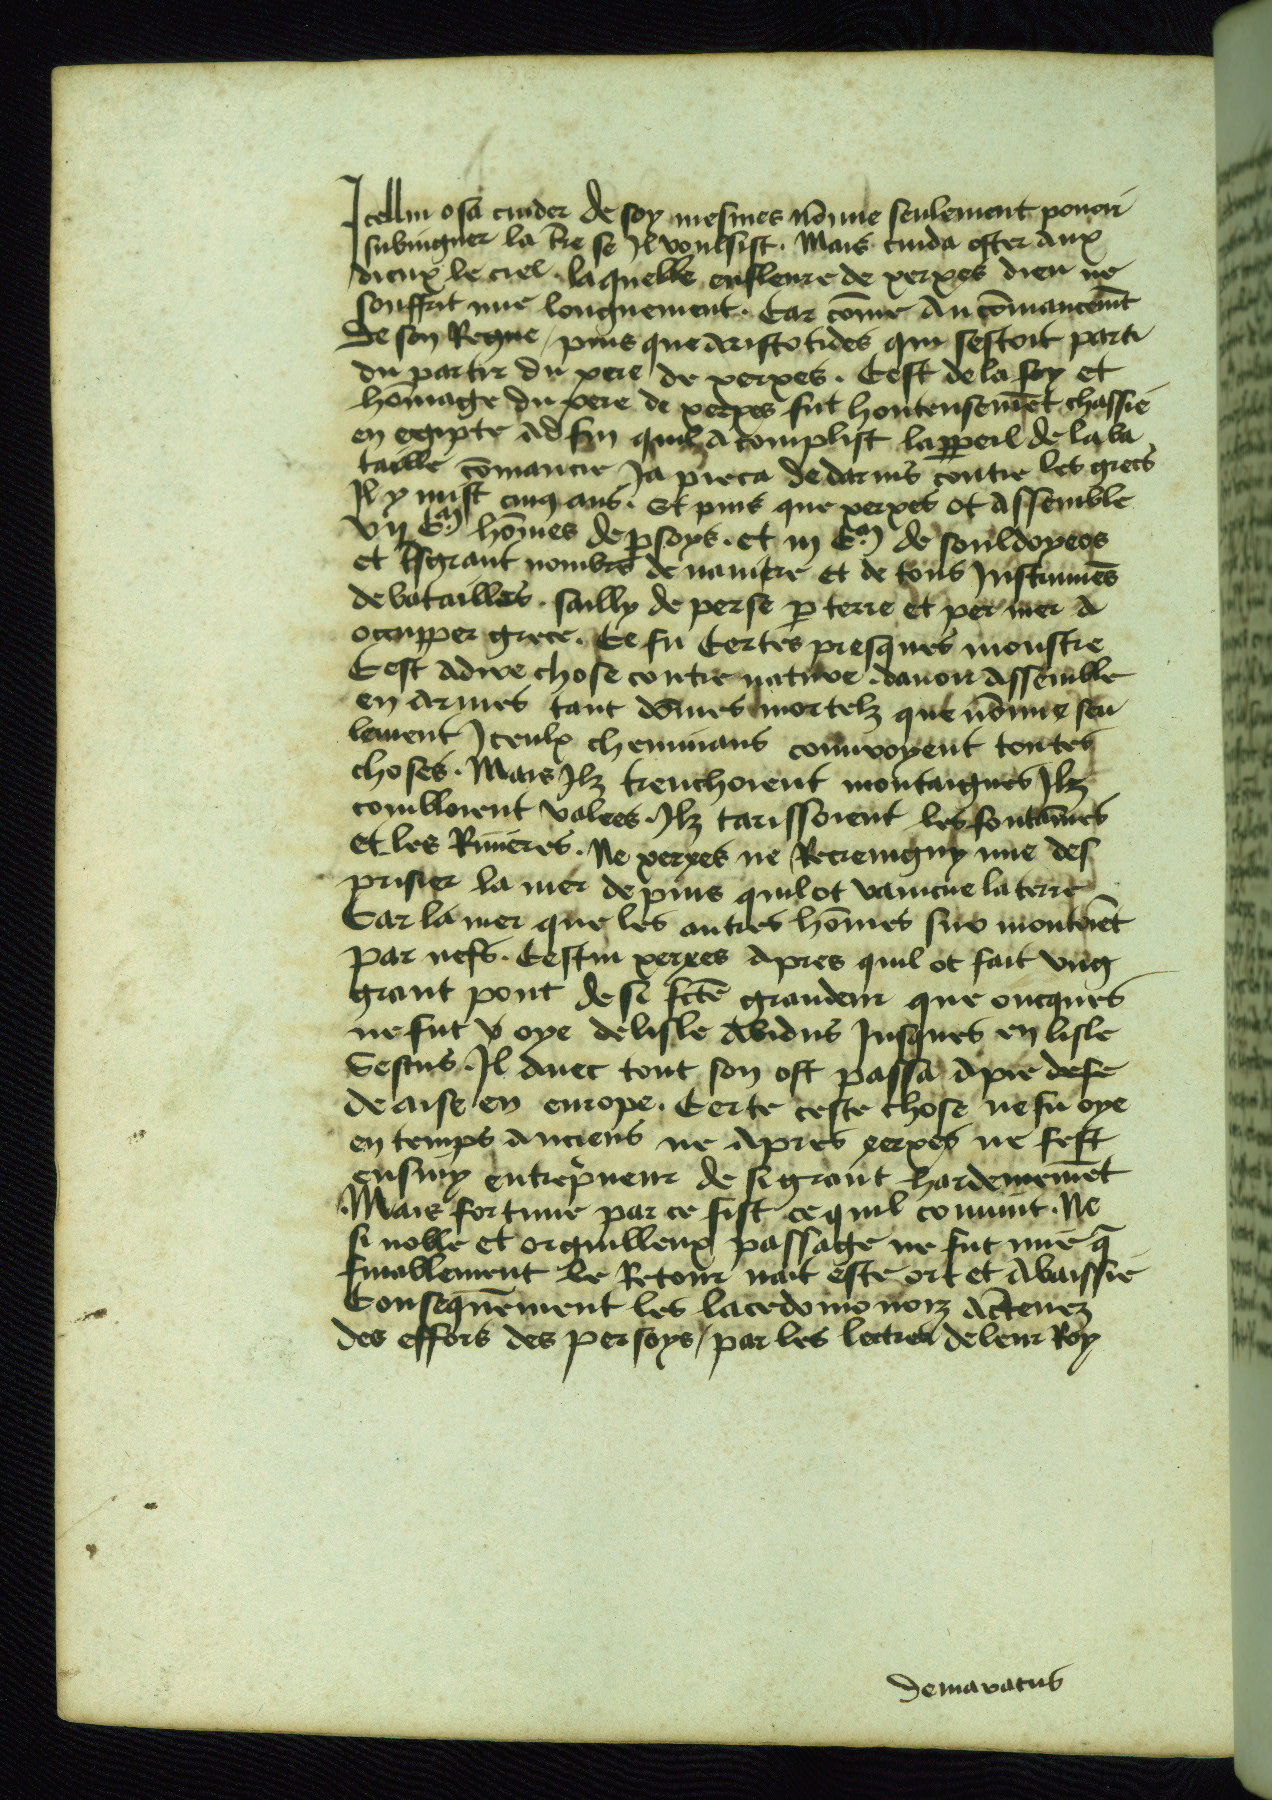 Icellui osa cuider de soy mesmes nōmie seulement pouoir
subiuguer la tr̄e se Il voulsist . Mais cuida oster aux
dieux le ciel . laquelle enfleure de xerxes dieu ne
souffrit mie longuement . Car cōme Au cōmancemēt
de son Regne / puis que aristotides qui sestoit parti
du partir du pere de xerxes . Cest de la foy et
hōmage du pere de xerxes fut honteusemēt chassie
en egipte Ad fin quil Acomplist lappeil de la ba
taille cōmancie Ja pieca de darius contre les grecs
Il y mist cinq ans . Et puis que xerxes ot Assemble
vij C.m hōmes de p̱soys . et iij C.m de souldoyeos
et tsgrant nombre de nauiere et de tous Instrumēs
de batailles . sailly de perse p̱ terre et per mer A
occupper grece . Ce fu Certes presques monstre
Cest Adire chose contre nature . dauoir Assemble
en Armes tant dōmes mortelz que nōmie seu
lement Iceulx cheminans conuroyent toutes
choses . Mais Ilz trenchoient montaignes Ilz
combloient valees . Ilz tarissoient les fontaines
et les Riuieres . Ne xerxes ne Recreingny mie des
prisier la mer depuis quil ot vaincue la terre
Car la mer que les autres hōmes sur montoiēt
par nefs . Cestui xerxes Apres quil ot fait vng
grant pont de si fcte grandeur que oncques
ne fut v oye de lisle Abidus Iusques en lisle
Sestus . Il auec tout son ost passa Apie desse
de aise en europe . Certe ceste chose ne fu oye
en temps Anciens ne Apres xerxes ne sest
ensuiy entrep̄neur de si grant hardememēt
Mais fortune par ce fist ce quil conuint . Ne
si noble et orguilleux passage ne fut mie q̄
finablement le Retour nait este ort et Abaissie
Consequēment les lacedomonoiz Actenez
des effors des persoys / par les lectres de leur Roy
demaratus